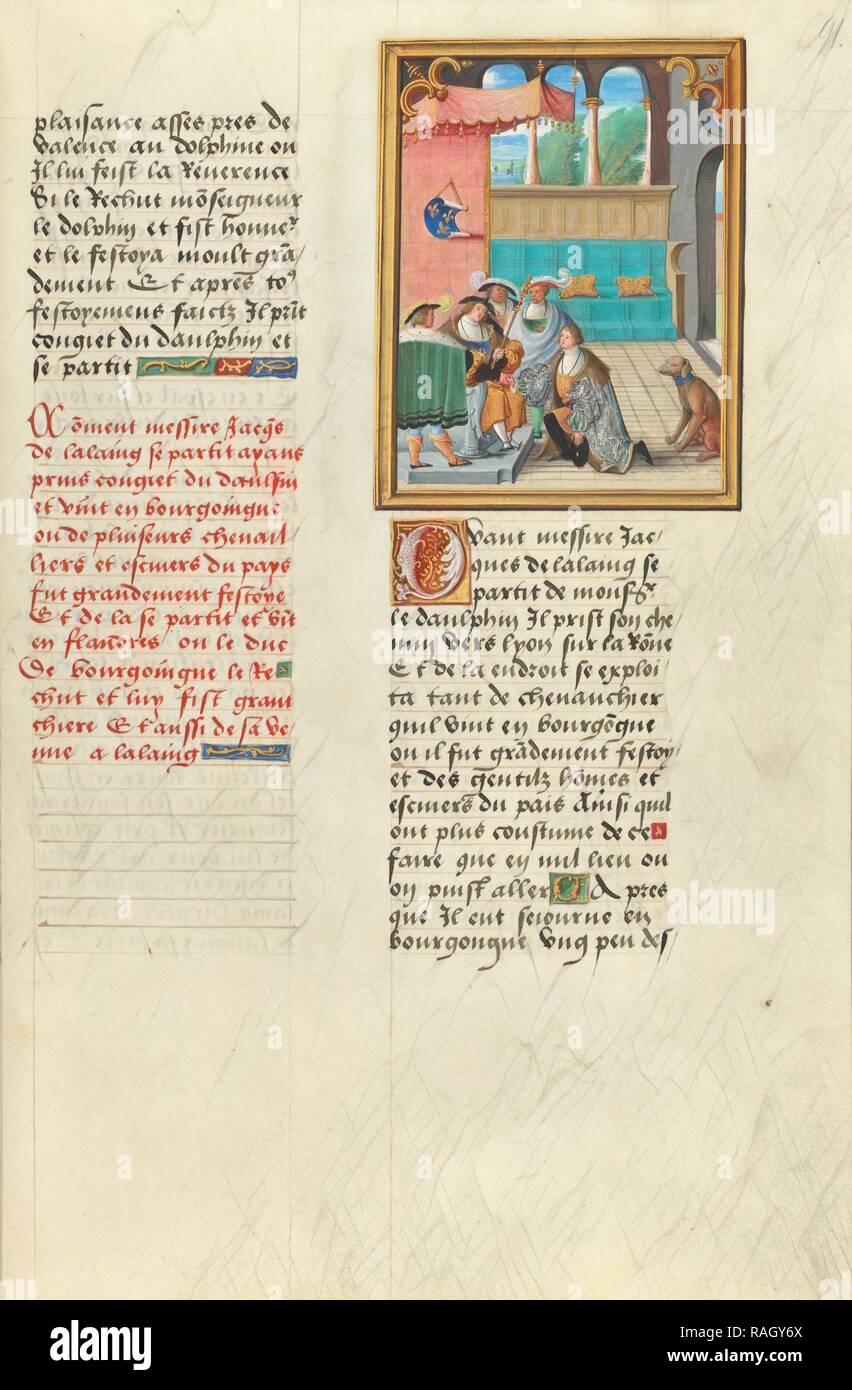 91.
plaisance asses pres de
valence au dolphine ou
Il lui feist la Reverence
Si le Rechut mōseigneur
le dolphin et fist honneᷣ
et le festoya moult grā/
dement Et apres toꝰ
festoyemens faictz Il prīt
congiet du daulphin et
se partit
Cōment messire Jacqs̄
de lalaing se partit ayans
prins congiet du daulfin
et vint en bourgoingne
ou de pluiseurs chevail/
liers et escuiers du pays
fut grandement festoye
Et de la se partit et vīt
en flandres / ou le duc
De bourgoingne le Re
chut et luy fist grant
chiere Et aussi de sa ve/
nue a lalaing
Qvant messire Jac/
ques de lalaing se
partit de monsᷣ
le daulphin Il prist son che/
min vers lyon sur la Rōne
Et de la endroit se exploi/
ta tant de chevauchier
quil vint en bourgōgne
ou il fut grādement festoy/
et des gentilz hōmes et
escuiers du pais Ainsi quil
ont plus coustume de ce
faire que en nul lieu ou
on puist aller Apres
que Il eut seiourne en
bourgongne vng peu des/
alamy
alamy
Image ID: RAGY6X
www.alamy.com